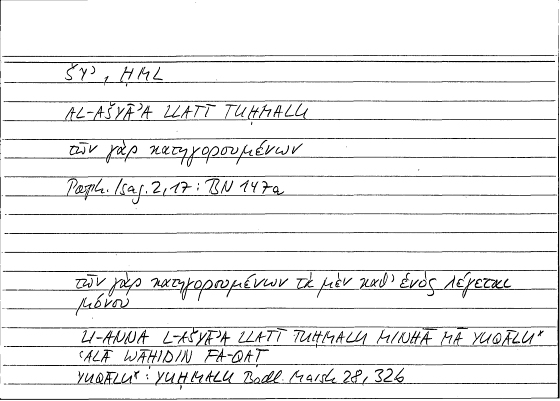 ŠYʾ, ḤML
AL-AŠYĀʾA LLATĪ TUḤMALU
τῶν γὰρ κατηγορουμένων
Porph. Isag. 2,17 : BN 147a
τῶν γὰρ κατηγορουμένων τὰ μὲν καθ' ἑνός λέγεται
μόνου
LI-ANNA L-AŠYĀʾA LLATĪ TUḤMALU MINHĀ MĀ YUQĀLU*
ʿALĀ WĀḤIDIN FA-QAṬ
YUQĀLU* : YUḤMALU Bodl. Marsh 28, 32b